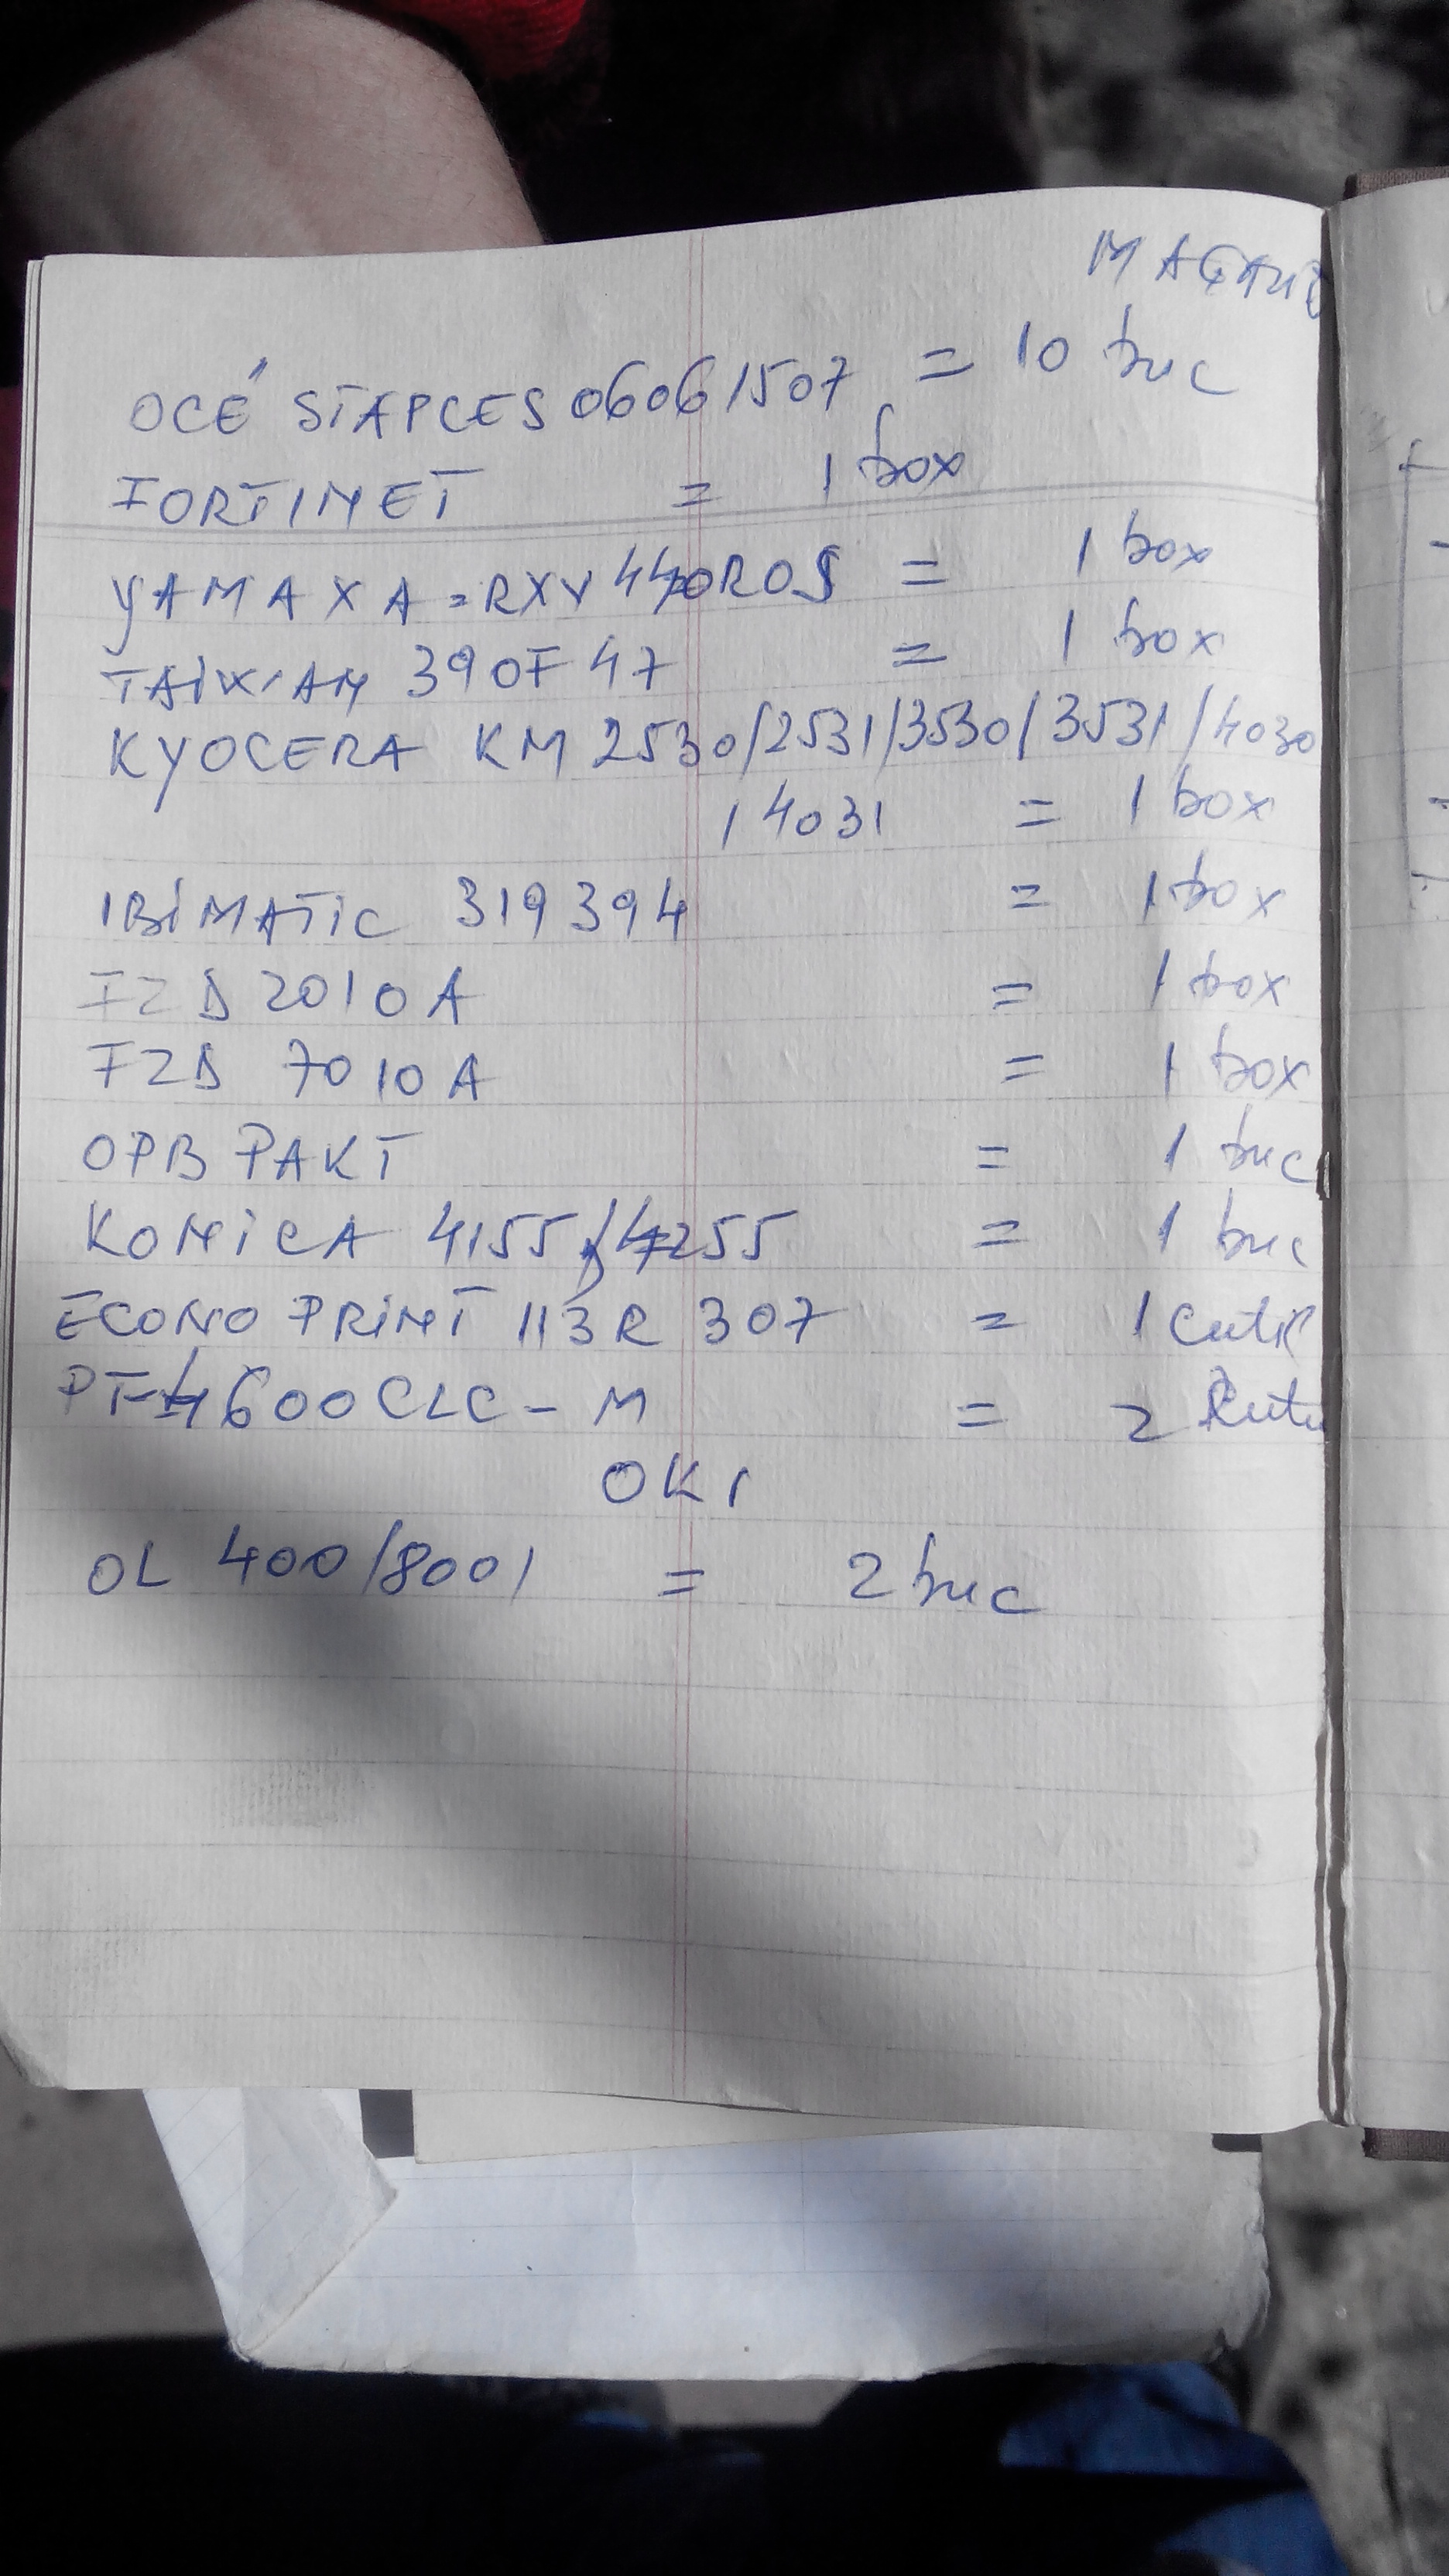 OCÉ STAPLES 06061507 = 10 buc
FORTINET = 1 box
YAMAXA = RXV 440RDS = 1 box
390F47 = 1 box
KYOCERA KM 2530/2531/3530/3531/4030
/4031 = 1 box
IBIMATIC 319394 = 1 box
FZD 2010A = 1 box
FZD 7010A = 1 box
OPB PAKT = 1 buc
KONICA 4155/4255 = 1 buc
ECONO PRINT 113R 307 = 1 cutie
PT-4600CLC-M = 2
OKI
OL 400/800/ = 2 buc